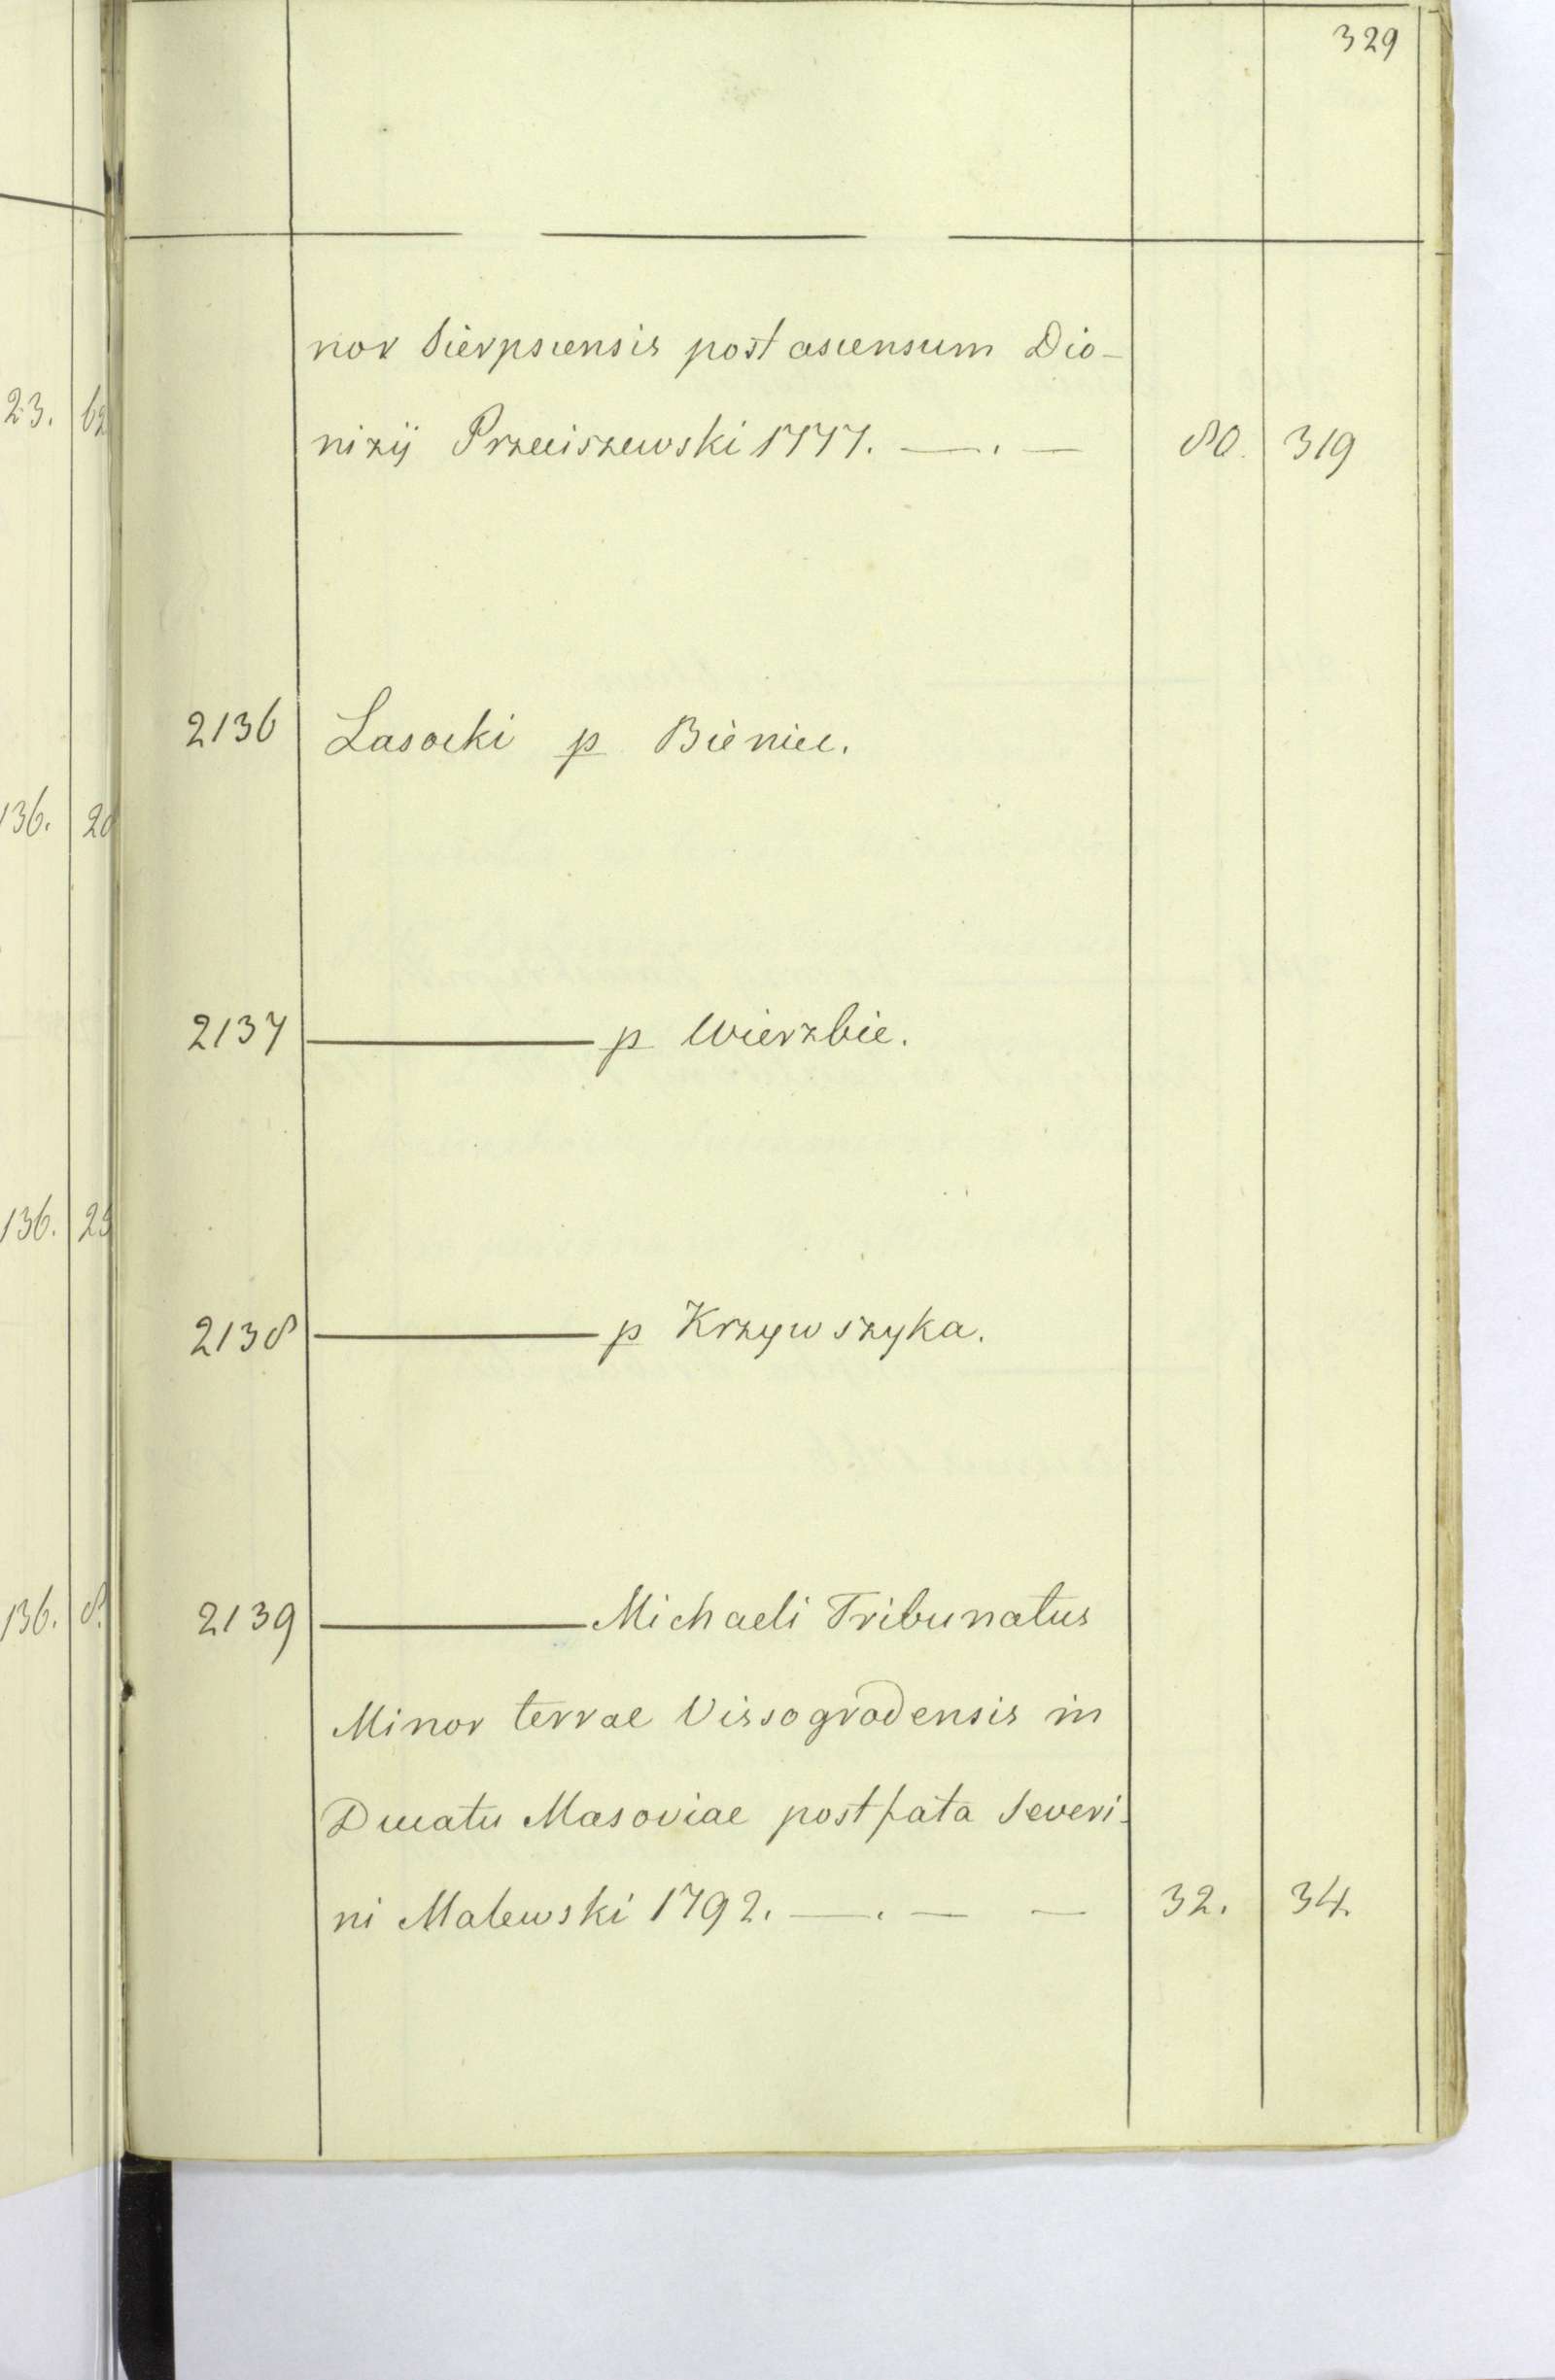 329
nor Sierpscensis post ascensum Dio-
nizij Przeciszewski 1777. —.— 80. 319
2136 Lasocki p Bieniec.
2137 ——— p Wierzbie.
2138 ——— p Krzywszyka.
2139 ——— Michaeli Tribunatus
Minor terrae Vissogrodensis in
Ducatu Masoviae post fata Severi-
ni Malewski 1792. —. — — 32. 34.
23.
136.
136.
136. 8.